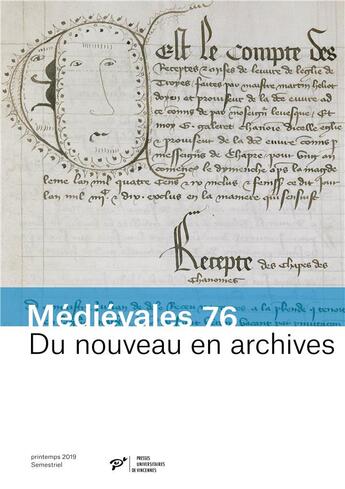 Est le Compte des
Receptes & mises de leuvre de leglise de
Troyes, faites par maistre martin heliot
doyen et proviseur de la dite euvre ad
ce comis de par noseign levesque, et
moy G. galeret chanoie dicelle eglise
& proviseur de la dite euvre comis
messeigns de chapre, pour ung an
comence le dymenche aps la magde
leme lan mil quatre cens, et
lan mil, & dix, exclus en la maniere qui sensuit
Recepte des Chapes des
Chanomes
Médiévales 76
Du nouveau en archives
printemps 2019
Semestriel
PRESSES
UNIVERSITAIRES
DE VINCENNES